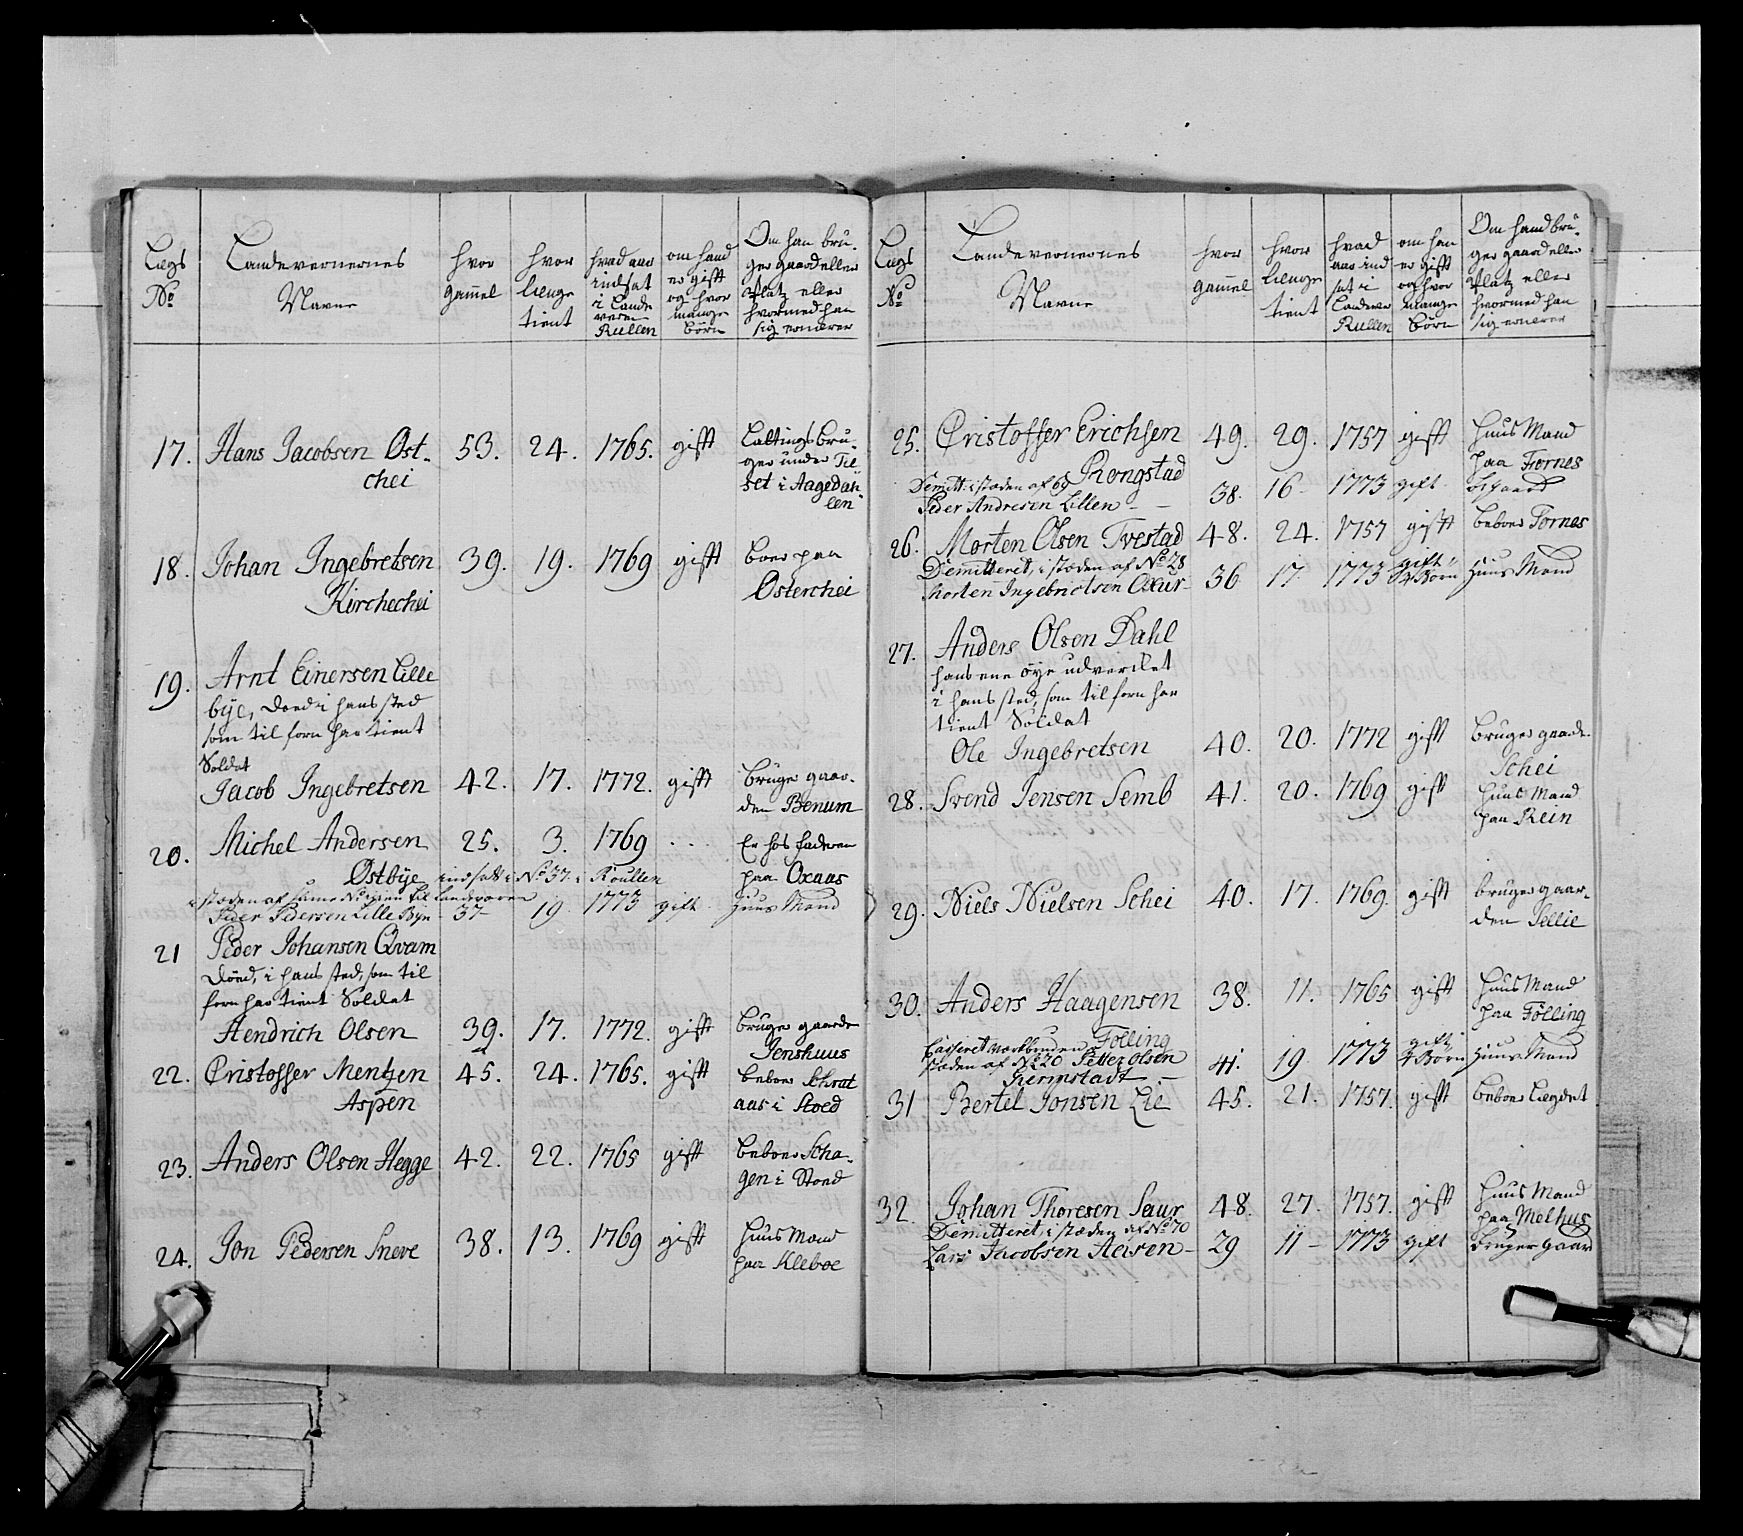 Lægs
No
Landevernernes
Navne
hvor
gammel
hvor
længe
tient
hvad aar
indsat
i Lande
værn
Rullen
om hand
er gift
og hvor
mange
børn
Om han bru-
ger gaard eller
Platz eller
hvormed han
sig ernerer
17. Hans Jacobsen Øst- 53. 24. 1765. gifft
chei
Laltings bru-
ger under Til
set i Aagedah-
len
18. Johan Ingebretsen 39. 19. 1769 gifft boer paa
Kirchechei Østerchei
19. Arnt Einersen Lille
bye, død i hans sted
som til forn har tient
Soldat
Jacob Ingebretsen 42. 17. 1772. gifft bruger gaar-
den Benum
20. Michel Andersen 25. 3. 1769 .... Er hos faderen
Østbye indsatt i No 37. i Roullen paa Oxaas
i stæden af samme No igien til Landværn
Peder Pedersen Lille Bye 37- 19. 1773 gift. Huus Mand
21 Peder Johansen Qvam
døed, i hans sted, som til
forn har tient Soldat
Hendrich Olsen 39. 17. 1772. gifft bruger gaarde
Jenshuus
22. Cristoffer Mentzen 45. 24. 1765. gifft beboer Schrat
Aspen aas i Stoed
23. Anders Olsen Hegge 42. 22. 1765 gifft beboer Scha-
gen i Stoed
24. Jon Pedersen Sneve 38. 13. 1769 gifft Huus Mand
paa Kleboe
Lægs
No
Landevernernes
Navne
hvor
gammel
hvor
længe
tient
hvad
aar ind
sat i
Landever
Rullen
om han
er gift
og hvor
mange
børn
Om hand bru-
ger gaard eller
Platz eller
hvormed han
sig ernerer
25. Cristoffer Erichsen 49. 29. 1757 gifft Huus Mand
Rongstad paa Fornes
Demitt: i stæden af 69
Peder Andresen Lillen - - 38. 16 - 1773 gift
26. Morten Olsen Tvestad 48. 24. 1757 gifft beboer Fornes
Demitteret, i stæden af No 28
Morten Ingebrictsen Oxur- 36 17. 1773 gift 4 Børn Huus Mand
27. Anders Olsen Dahl
hans ene øye udverclet
i hans sted, som til forn har
tient Soldat
Ole Ingebretsen 40. 20. 1772 gifft bruger gaarde.
Schei
28. Svend Jensen Semb 41. 20. 1769 gifft Huus Mand
paa Rein
29. Niels Nielsen Schei 40. 17. 1769. gifft bruger gaar-
den Sellie
30. Anders Haagensen 38. 11. 1765 gifft Huus Mand
Følling paa Følling
Casseret
stæden af No 20 Petter Olsen 41. 19. 1773 gift 4 Børn Huus Mand
31 Bertel Jonsen Lie 45. 21. 1757. gifft beboer Lægdet
32. Johan Thoresen Saur 48. 27. 1757. gifft Huus Mand
paa Melhus
Demitteret, i stæden af No 70
Lars Jacobsen Heisen- 29 11 - 1773 gift Bruger Gaar